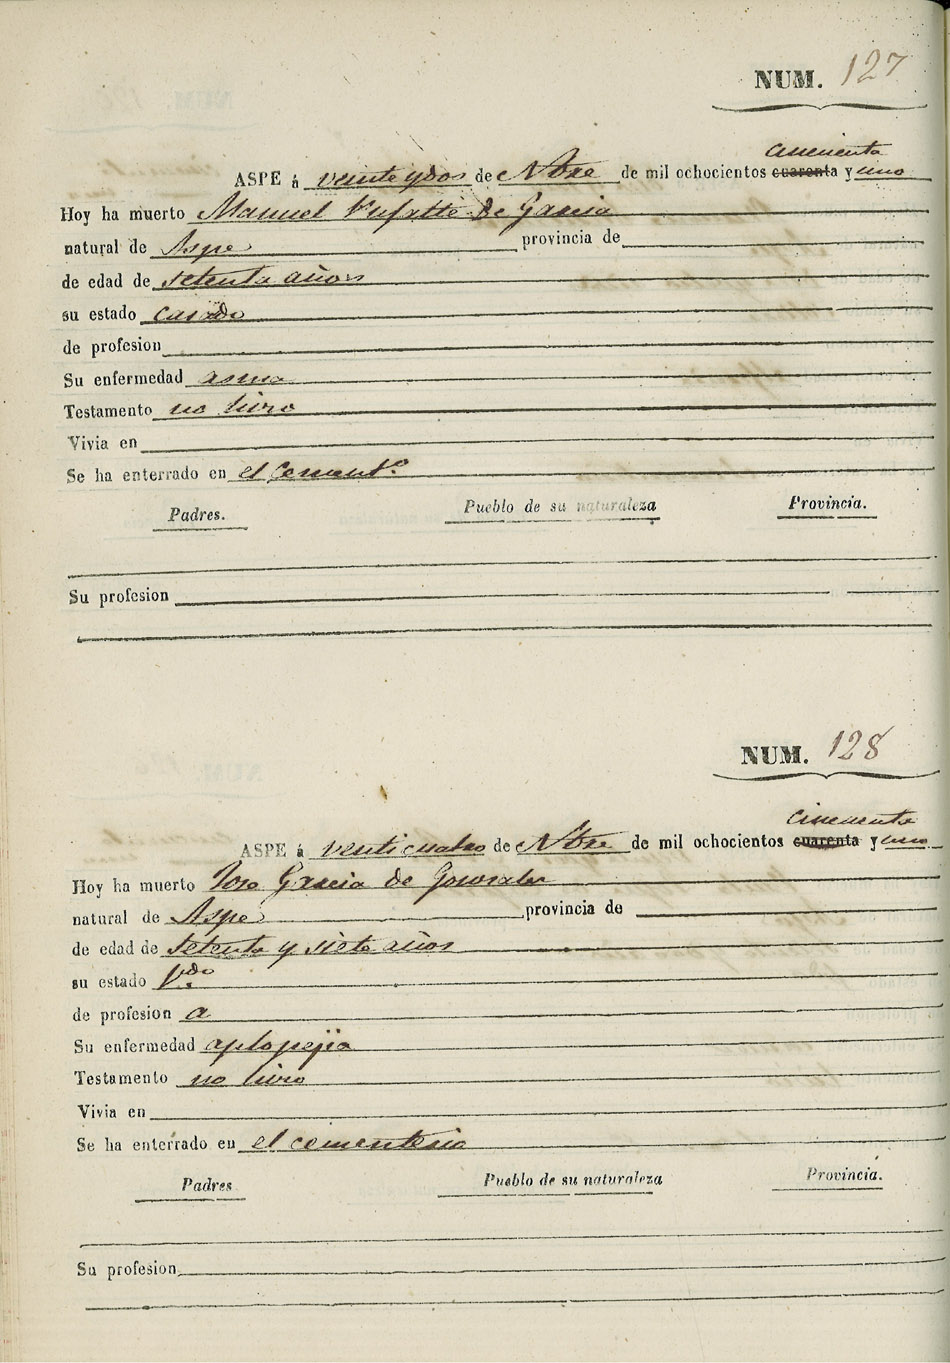 NUM. 127
cincuenta
ASPE á veinte y dos de Nbre de mil ochocientos cuarenta y uno
Hoy ha muerto Manuel de Garcia
natural de Aspe provincia de
de edad de setenta años
su estado casado
de profesion
Su enfermedad asma
Testamento no hizo
Vivia en
Se ha enterrado en el Cement.º
Padres. Pueblo de su naturaleza Provincia.
Su profesion
NUM. 128
cincuenta
ASPE á venti cuatro de Nbre de mil ochocientos cuarenta y uno
Hoy ha muerto Jose Garcia de Gonzalez
natural de Aspe provincia de
de edad de setenta y siete años
su estado V.do
de profesion a
Su enfermedad aplopejia
Testamento no hizo
Vivia en
Se ha enterrado en el cementerio
Padres Pueblo de su naturaleza Provincia.
Su profesion